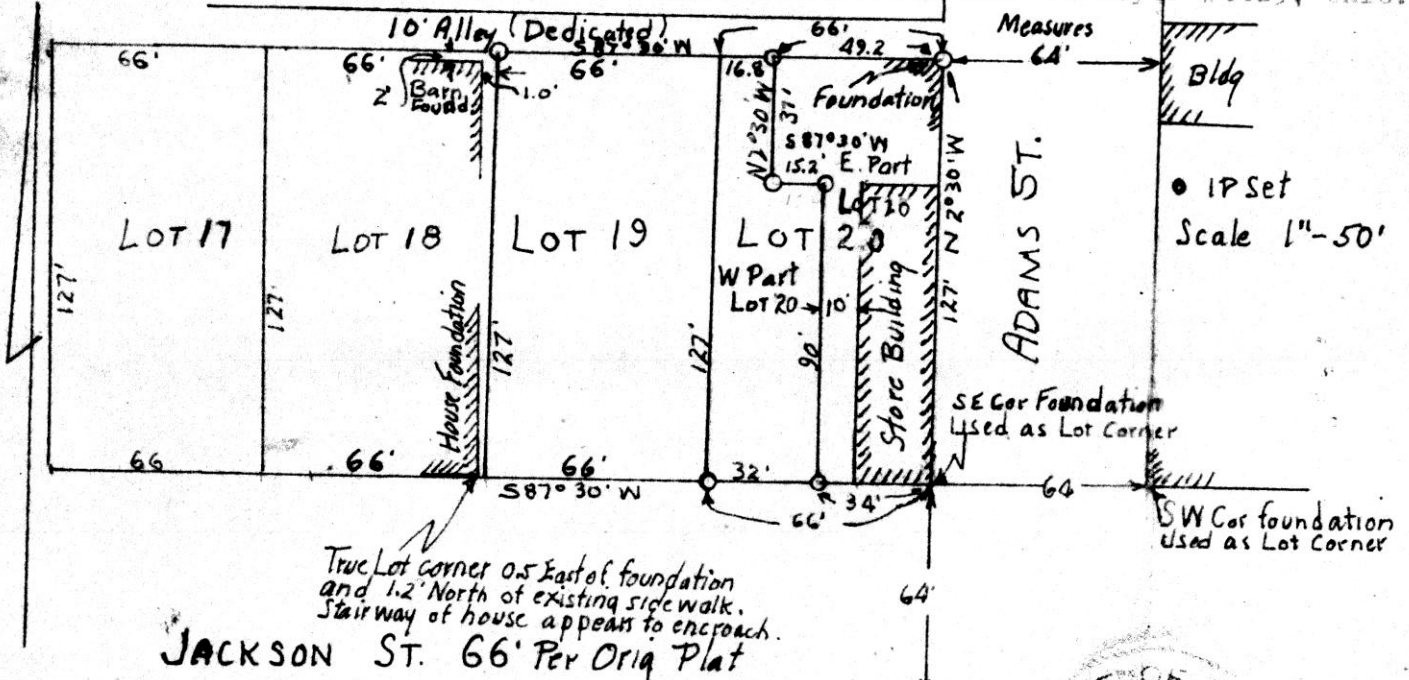 10' Alley (Dedicated)
S 87° 30' W
66'
66'
66'
66'
16.8
49.2
Measures
64'
Bldg
2'
Barn
Found
1.0'
Foundation
N 2° 30' W
37'
S 87° 30' W
15.2'
E. Part
LOT 20
IP Set
Scale 1"-50'
LOT 17
LOT 18
LOT 19
LOT 20
W Part
LOT 20
10'
127'
127'
127'
127'
90'
127' N 2° 30' W
House Foundation
Store Building
ADAMS ST.
SE Cor Foundation
Used as Lot Corner
66
66'
66'
32'
34'
66'
64
S 87° 30' W
SW Cor foundation
Used as Lot Corner
True Lot corner 0.5 East of foundation
and 1.2' North of existing sidewalk.
Stairway of house appears to encroach.
64'
JACKSON ST. 66' Per Orig Plat